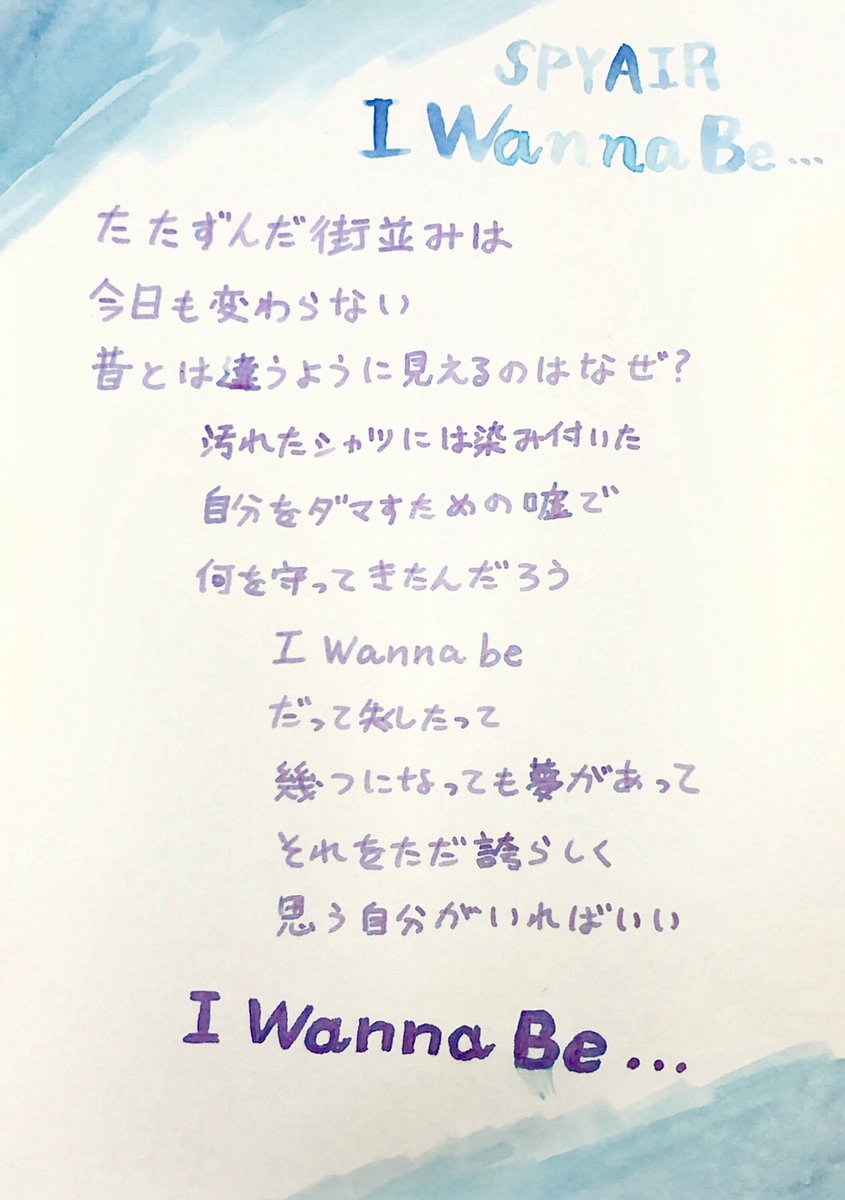 SPYAIR
I Wanna Be...
たたずんだ街並みは
今日も変わらない
昔とは違うように見えるのはなぜ?
汚れたシャツには染み付いた
自分をダマすための嘘で
何を守ってきたんだろう
I Wanna be
だって失くしたって
幾つになっても夢があって
それをただ誇らしく
思う自分がいればいい
I Wanna Be...